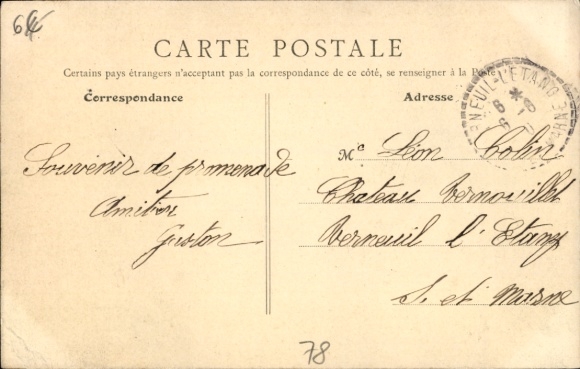 64
CARTE POSTALE
Certains pays étrangers n'acceptant pas la correspondance de ce côté, se renseigner à la Poste
Correspondance
Adresse
Souvenir de promenade
Amitiés
Gaston
Mr Léon Colin
Chateau Vernouillet
Verneuil l'Etang
S. et Marne
VERNEUIL-L'ETANG
78